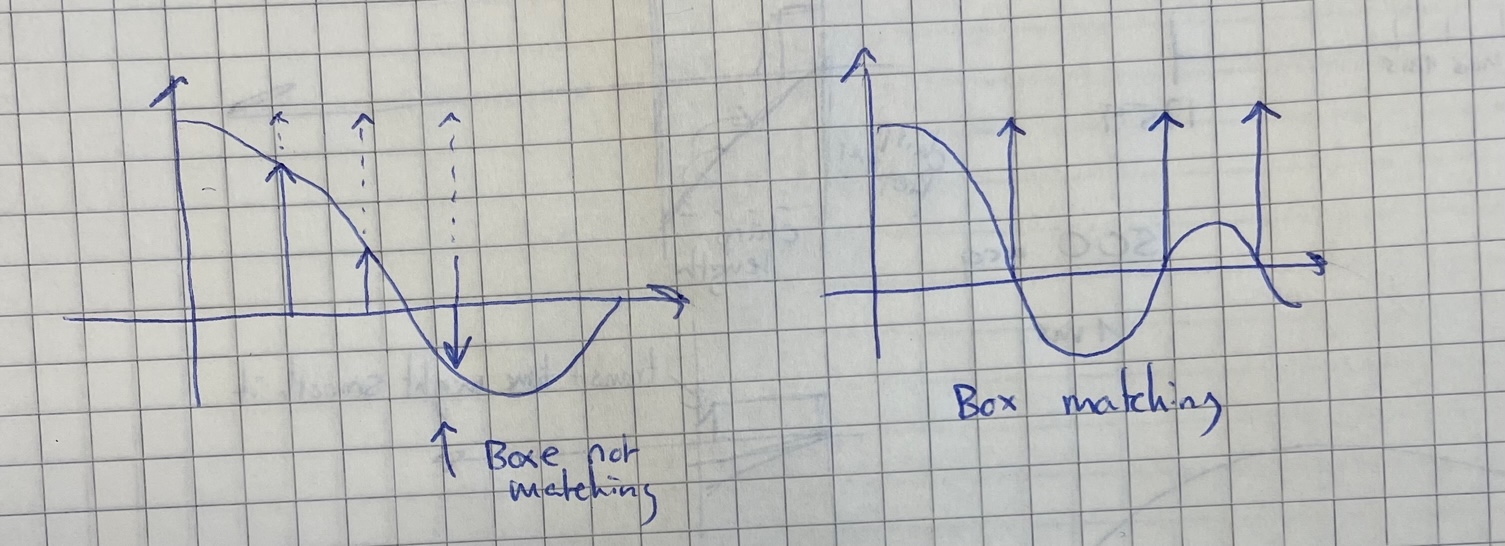 Boxe not
matching
Box matching